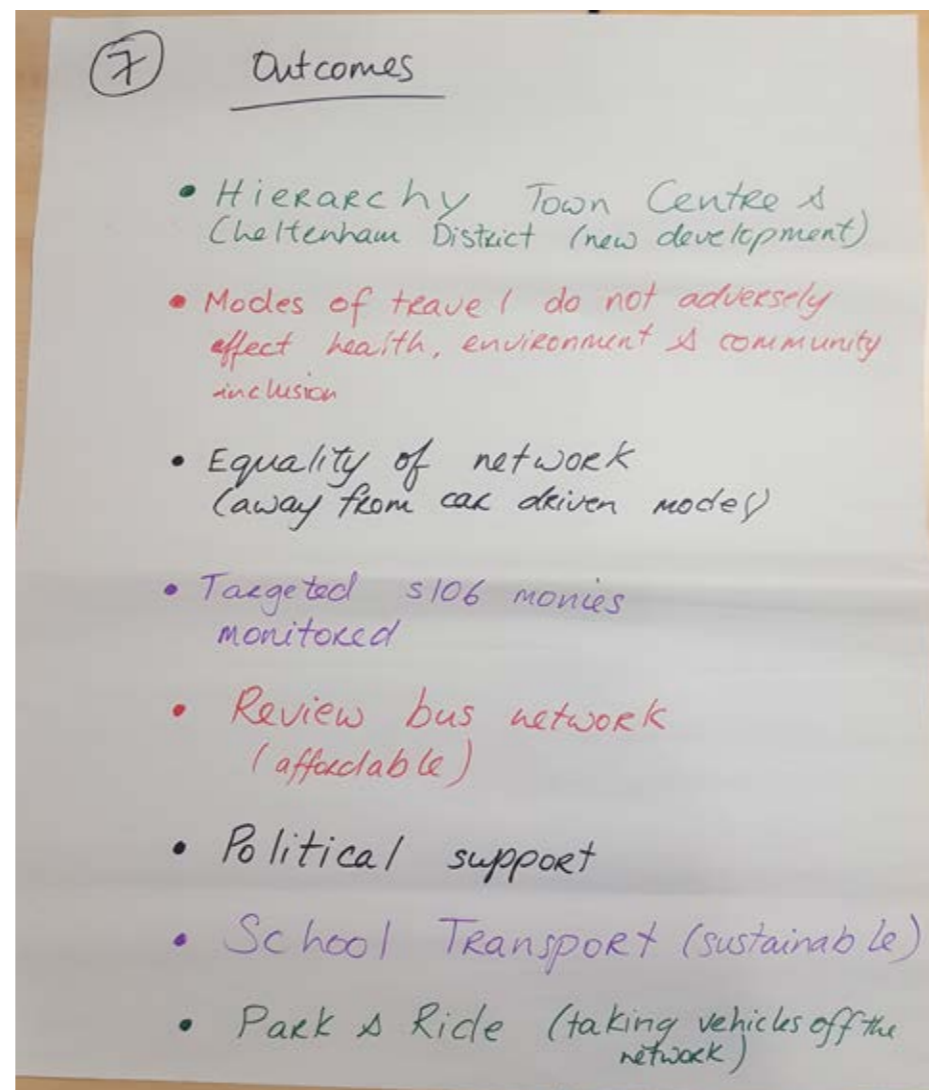 7 Outcomes
• Hierarchy Town Centre &
Cheltenham District (new development)
• Modes of travel do not adversely
effect health, environment & community
inclusion
• Equality of network
(away from car driven modes)
• Targeted s106 monies
monitored
• Review bus network
(affordable)
• Political support
• School Transport (sustainable)
• Park & Ride (taking vehicles off the
network)